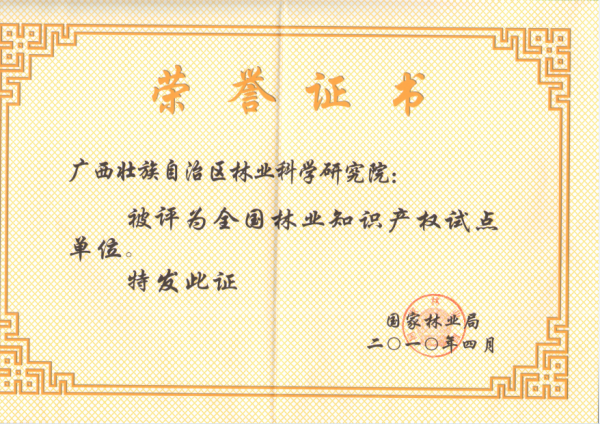 荣誉证书
广西壮族自治区林业科学研究院：
被评为全国林业知识产权试点
单位。
特发此证
国家林业局
二〇一〇年四月